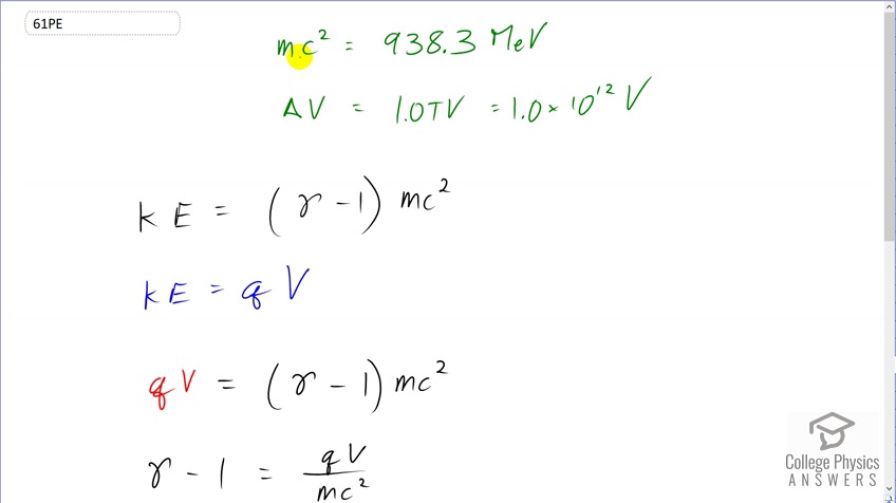 61PE
mc² = 938.3 MeV
ΔV = 1.0TV = 1.0 × 10¹² V
KE = (γ - 1) mc²
KE = qV
qV = (γ - 1) mc²
γ - 1 = qV / mc²
College Physics
ANSWERS